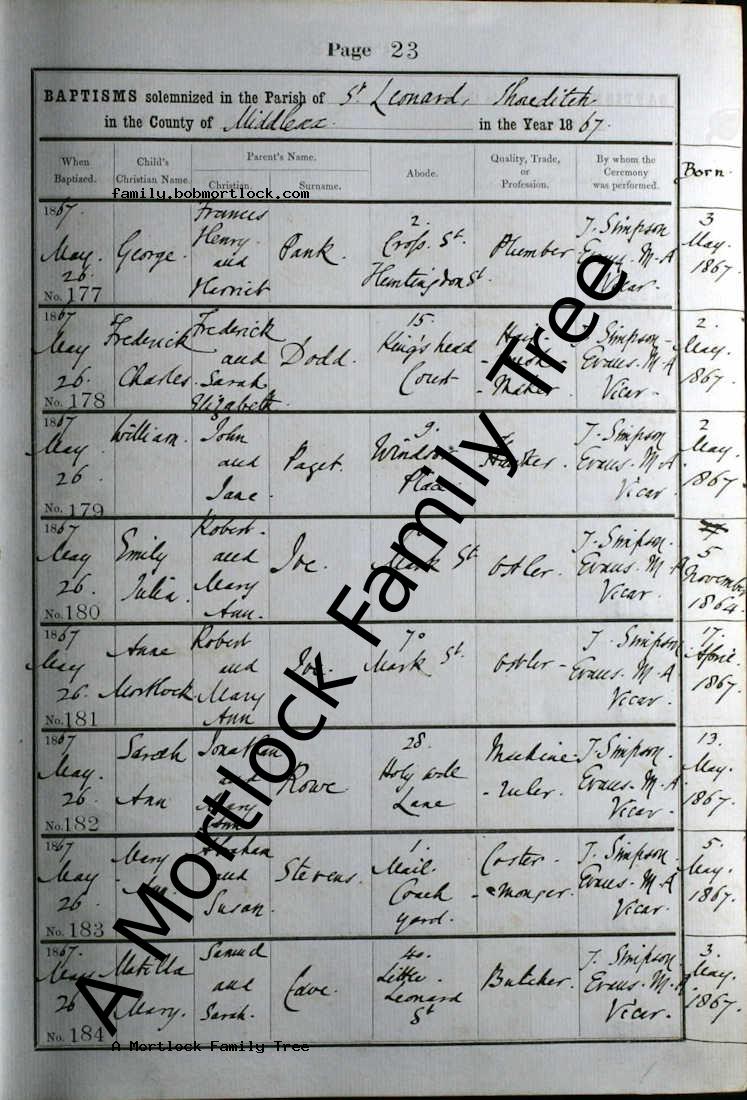 Page 23
BAPTISMS solemnized in the Parish of St Leonard, Shoreditch
in the County of Middlesex in the Year 1867.
When Baptized.
Child's Christian Name.
Parent's Name.
Christian.
Surname.
Abode.
Quality, Trade, or Profession.
By whom the Ceremony was performed.
Born.
family.bobmortlock.com
1867.
May
26.
No. 177
George.
Francis
Henry
and
Harriet
Pank.
2.
Cross St
Huntingdon St
Plumber
J. Simpson
Evans. M-A
Vicar.
3
May.
1867.
1867
May
26.
No. 178
Frederick
Charles
Frederick
and
Sarah
Elizabeth
Dodd.
15.
King's head
Court
Hair-
-brush-
-Maker
J. Simpson-
Evans. M.A
Vicar-
2.
May.
1867.
1867
May
26.
No. 179
William.
John
and
Jane.
Paget.
9.
Windsor
Place
J. Simpson
Evans. M.A
Vicar
2
May.
1867.
1867
May
26.
No. 180
Emily
Julia.
Robert
and
Mary
Ann.
Ive.
Mark St
Ostler.
J. Simpson.
Evans. M-A
Vicar.
5
November
1864.
1867
May
26.
No. 181
Anne
Mortlock
Robert
and
Mary
Ann
Ive.
70
Mark St.
Ostler-
J. Simpson
Evans. M-A
Vicar.
17.
April.
1867.
1867
May.
26.
No. 182
Sarah
Ann
Jonathan
and
Mary
Ann
Rowe
28.
Holywell
Lane
Machine-
-ruler.
J. Simpson.
Evans- M-A
Vicar.
13.
May.
1867.
1867
May
26.
No. 183
Mary
Ann.
Abraham
and
Susan.
Stevens.
1.
Mail.
Coach
yard.
Coster-
-monger.
J. Simpson
Evans- M-A
Vicar.
5.
May.
1867.
1867.
May
26
No. 184
Matilda
Mary.
Samuel
and
Sarah.
Cave.
40.
Little.
Leonard
St
Butcher.
J. Simpson
Evans. M.A
Vicar.
3.
May.
1867.
A Mortlock Family Tree
A Mortlock Family Tree